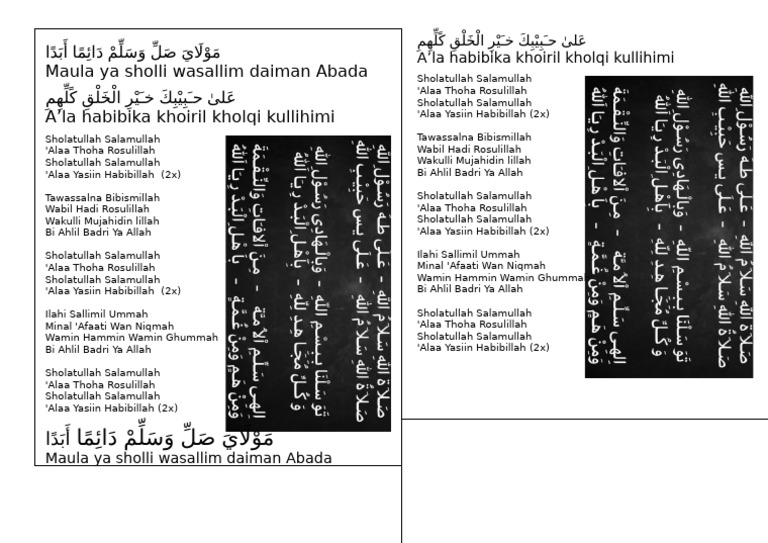 مَوْلَايَ صَلِّ وَسَلِّمْ دَائِمًا أَبَدًا
Maula ya sholli wasallim daiman Abada
عَلىٰ حَبِيْبِكَ خَيْرِ الْخَلْقِ كُلِّهِمِ
A’la habibika khoiril kholqi kullihimi
Sholatullah Salamullah
'Alaa Thoha Rosulillah
Sholatullah Salamullah
'Alaa Yasiin Habibillah  (2x)
Tawassalna Bibismillah
Wabil Hadi Rosulillah
Wakulli Mujahidin lillah
Bi Ahlil Badri Ya Allah
Sholatullah Salamullah
'Alaa Thoha Rosulillah
Sholatullah Salamullah
'Alaa Yasiin Habibillah  (2x)
Ilahi Sallimil Ummah
Minal 'Afaati Wan Niqmah
Wamin Hammin Wamin Ghummah
Bi Ahlil Badri Ya Allah
Sholatullah Salamullah
'Alaa Thoha Rosulillah
Sholatullah Salamullah
'Alaa Yasiin Habibillah (2x)
صَلَاةُ اللهِ سَلَامُ اللهِ - عَلَى طٰهَ رَسُوْلِ اللهِ
صَلَاةُ اللهِ سَلَامُ اللهِ - عَلَى يٰسٓ حَبِيْبِ اللهِ
تَوَسَّلْنَا بِبِسْمِ اللهِ - وَبِالْهَادِى رَسُوْلِ اللهِ
وَكُلِّ مُجَاهِدٍ لِلّٰهِ - بِاَهْلِ الْبَدْرِ يَا اَللهُ
اِلٰهِى سَلِّمِ الْاُمَّةَ - مِنَ الْاٰفَاتِ وَالنِّقْمَةِ
وَمِنْ هَمٍّ وَمِنْ غُمَّةٍ - بِاَهْلِ الْبَدْرِ يَا اَللهُ
مَوْلَايَ صَلِّ وَسَلِّمْ دَائِمًا أَبَدًا
Maula ya sholli wasallim daiman Abada
عَلىٰ حَبِيْبِكَ خَيْرِ الْخَلْقِ كُلِّهِمِ
A’la habibika khoiril kholqi kullihimi
Sholatullah Salamullah
'Alaa Thoha Rosulillah
Sholatullah Salamullah
'Alaa Yasiin Habibillah (2x)
Tawassalna Bibismillah
Wabil Hadi Rosulillah
Wakulli Mujahidin lillah
Bi Ahlil Badri Ya Allah
Sholatullah Salamullah
'Alaa Thoha Rosulillah
Sholatullah Salamullah
'Alaa Yasiin Habibillah (2x)
Ilahi Sallimil Ummah
Minal 'Afaati Wan Niqmah
Wamin Hammin Wamin Ghummah
Bi Ahlil Badri Ya Allah
Sholatullah Salamullah
'Alaa Thoha Rosulillah
Sholatullah Salamullah
'Alaa Yasiin Habibillah (2x)
صَلَاةُ اللهِ سَلَامُ اللهِ - عَلَى طٰهَ رَسُوْلِ اللهِ
صَلَاةُ اللهِ سَلَامُ اللهِ - عَلَى يٰسٓ حَبِيْبِ اللهِ
تَوَسَّلْنَا بِبِسْمِ اللهِ - وَبِالْهَادِى رَسُوْلِ اللهِ
وَكُلِّ مُجَاهِدٍ لِلّٰهِ - بِاَهْلِ الْبَدْرِ يَا اَللهُ
اِلٰهِى سَلِّمِ الْاُمَّةَ - مِنَ الْاٰفَاتِ وَالنِّقْمَةِ
وَمِنْ هَمٍّ وَمِنْ غُمَّةٍ - بِاَهْلِ الْبَدْرِ يَا اَللهُ